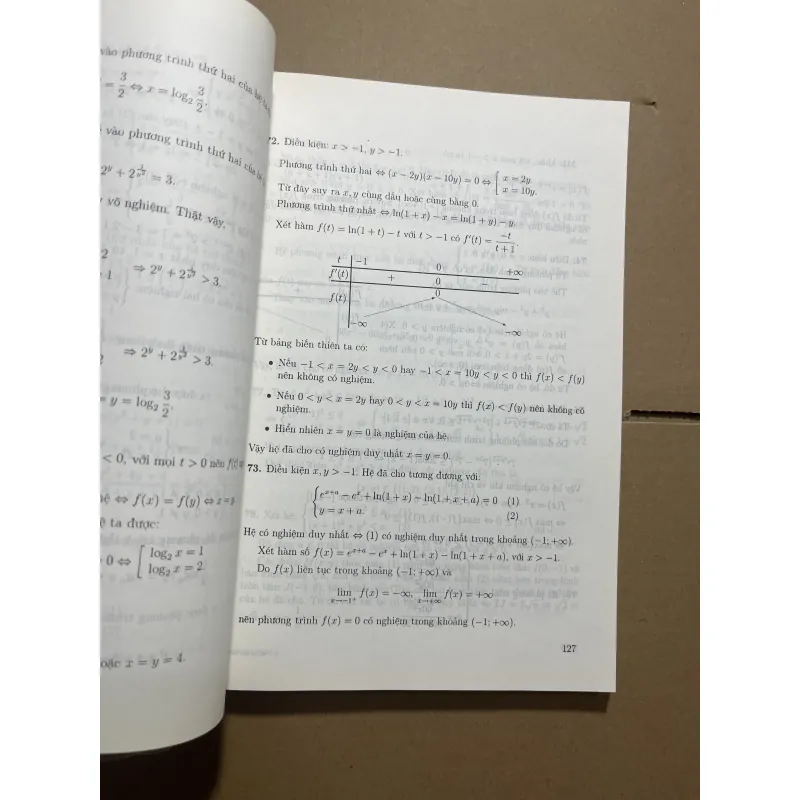 vào phương trình thứ hai của hệ ta
= 3/2 ⇔ x = log₂ 3/2.
vào phương trình thứ hai của
2^y + 2^ = 3.
vô nghiệm. Thật vậy,
⇒ 2^y + 2^ > 3.
⇒ 2^y + 2^ > 3.
= y = log₂ 3/2.
< 0, với mọi t > 0 nên f(t)
hệ ⇔ f(x) = f(y) ⇔ x = y
hệ ta được:
0 ⇔ [ log₂ x = 1
log₂ x = 2
hoặc x = y = 4.
72. Điều kiện: x > −1, y > −1.
Phương trình thứ hai ⇔ (x − 2y)(x − 10y) = 0 ⇔ [ x = 2y
x = 10y.
Từ đây suy ra x, y cùng dấu hoặc cùng bằng 0.
Phương trình thứ nhất ⇔ ln(1 + x) − x = ln(1 + y) − y.
Xét hàm f(t) = ln(1 + t) − t với t > −1 có f′(t) = −t/(t + 1).
t −1 0 +∞
f′(t) + 0 −
f(t) −∞ 0 −∞
Từ bảng biến thiên ta có:
• Nếu −1 < x = 2y < y < 0 hay −1 < x = 10y < y < 0 thì f(x) < f(y)
nên không có nghiệm.
• Nếu 0 < y < x = 2y hay 0 < y < x = 10y thì f(x) < f(y) nên không có
nghiệm.
• Hiển nhiên x = y = 0 là nghiệm của hệ.
Vậy hệ đã cho có nghiệm duy nhất x = y = 0.
73. Điều kiện x, y > −1. Hệ đã cho tương đương với:
{ e^(x+a) − e^x + ln(1 + x) − ln(1 + x + a) = 0 (1)
y = x + a. (2)
Hệ có nghiệm duy nhất ⇔ (1) có nghiệm duy nhất trong khoảng (−1; +∞).
Xét hàm số f(x) = e^(x+a) − e^x + ln(1 + x) − ln(1 + x + a), với x > −1.
Do f(x) liên tục trong khoảng (−1; +∞) và
lim x→−1⁺ f(x) = −∞, lim x→+∞ f(x) = +∞
nên phương trình f(x) = 0 có nghiệm trong khoảng (−1; +∞).
127